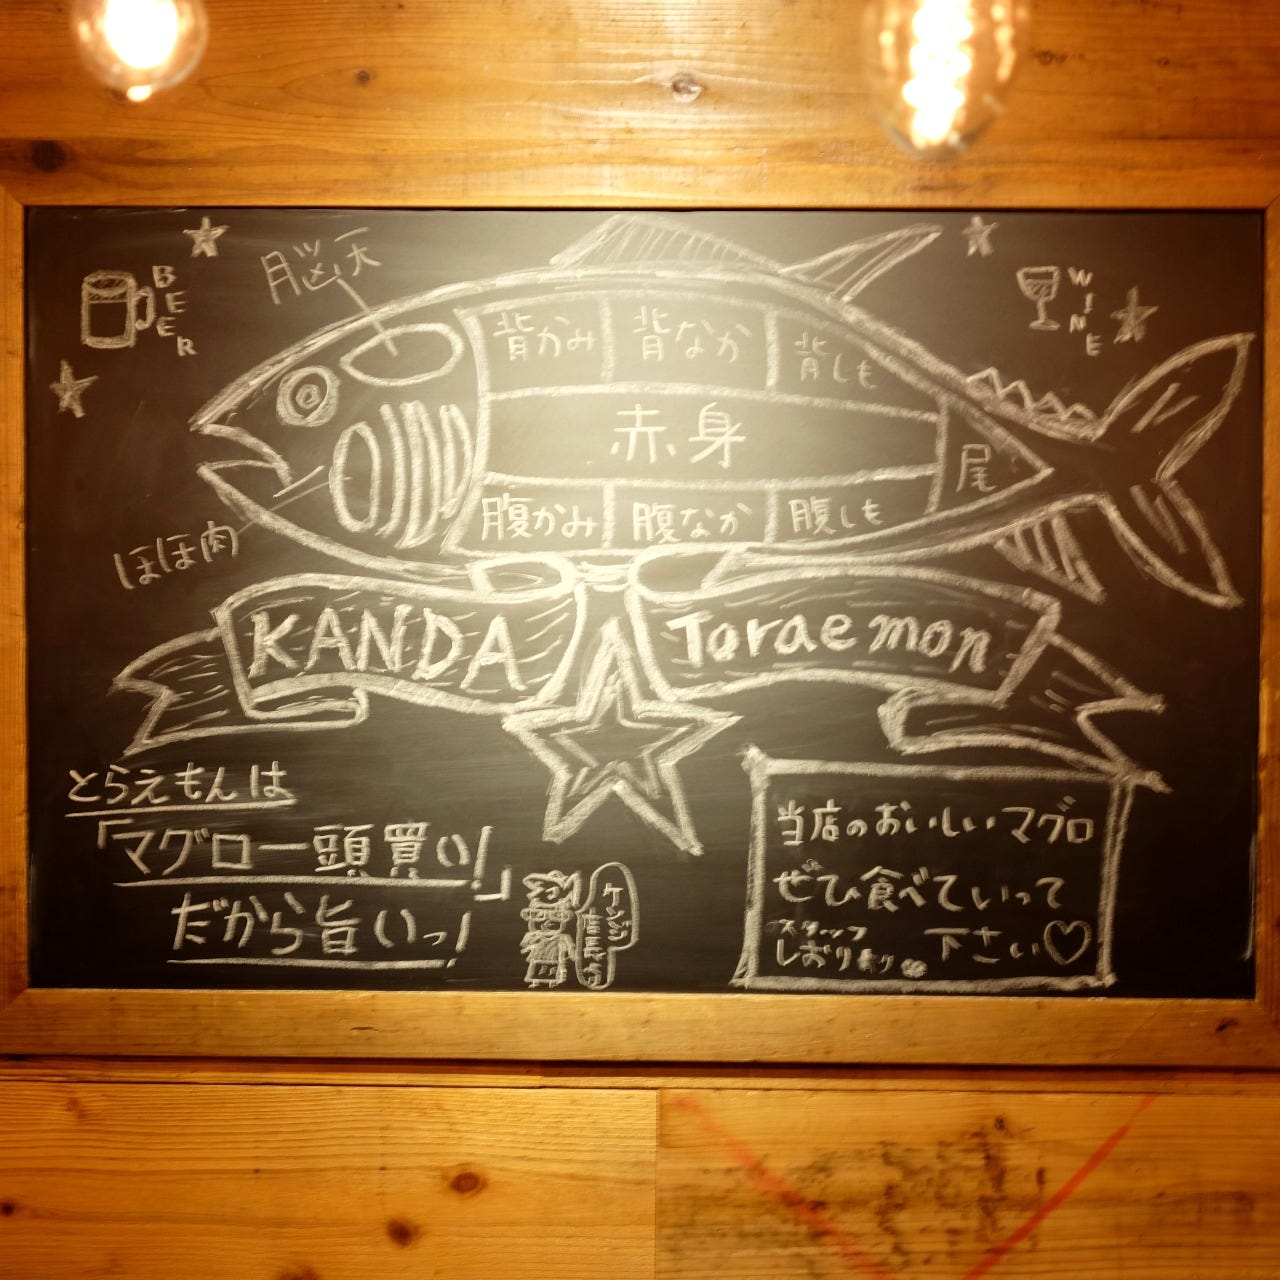 BEER
脳天
WINE
背かみ
背なか
背しも
赤身
尾
腹かみ
腹なか
腹しも
ほほ肉
KANDA
Toraemon
とらえもんは
「マグロ一頭買い!」
だから旨いっ!
当店のおいしいマグロ
ぜひ食べていって
下さい♡
スタッフ
しおりより
ケンジ